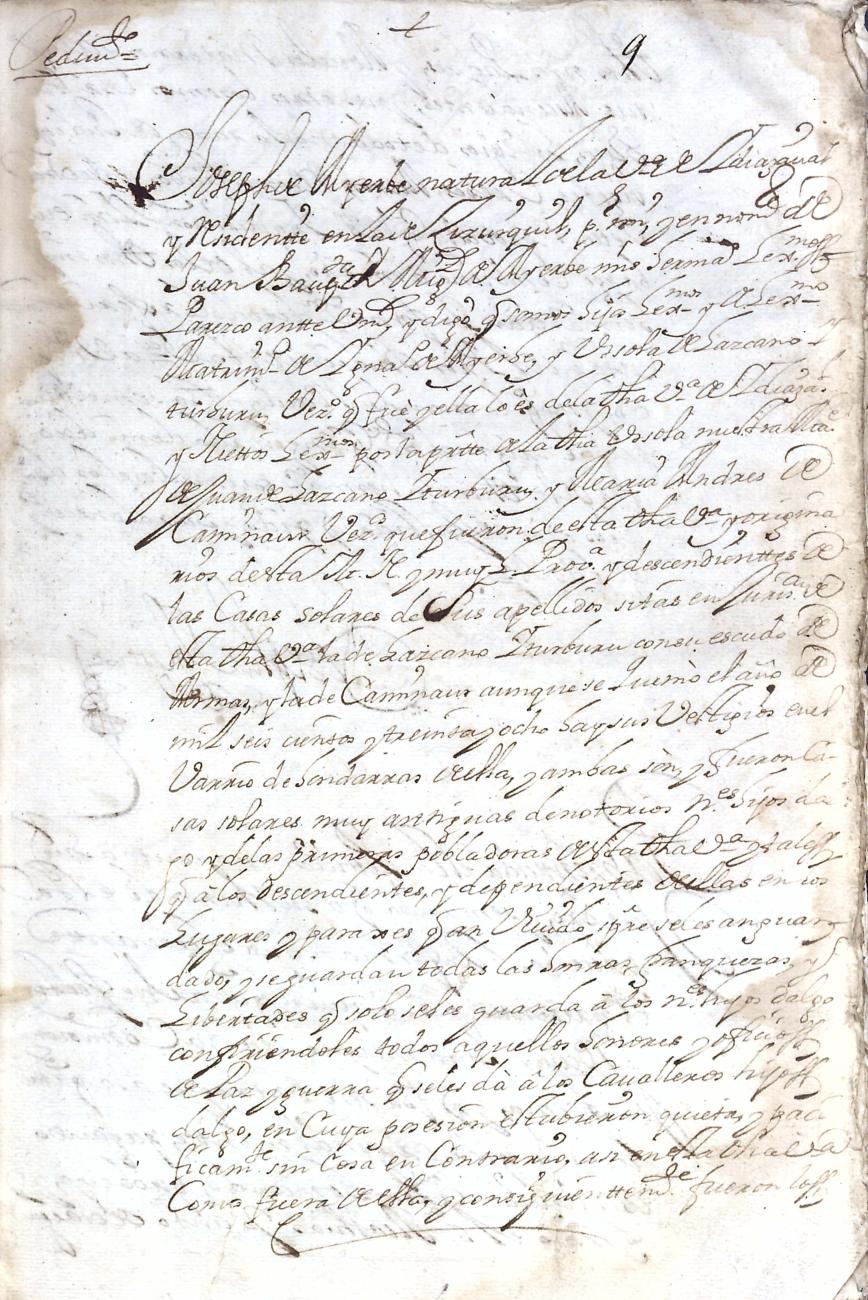 Pedimde
9
Joseph de Ayerbe natural de la Va de Idiazaval
y Residentte en la de Zizurquil, p. mi, y en nomre de
Juan Bauptta Migl de Ayerbe mis hermas lexmos
Parezco antte Vmd y digo q somos hijos lexmos y de lexmo
Matrimo de Ignal de Ayerbe, y Ursola de Lazcano
Yturburu, Vezos q fue y ella lo es de la tha Va de Idiaza
y Niettos lexmos por la prte de la tha Ursola nuestra Me
de Juan de Lazcano Iturburu, y Maria Andres de
Camінaur Vezos que fueron de esta tha Va y origina
rios de esta M. N. y muy L. Prova y descendienttes de
las Casas solares de sus apellidos sitas en Jurison de
esta tha Va la de Lazcano Iturburu con su escudo de
Armas, y la de Caminaur aunque se quemo el año de
mil seis cientos y treinta y ocho hay sus Vestigios en el
Varrio de hondarras de ella, y ambas son, y fueron Ca-
sas solares muy antiguas de notorios nes hijos dal
go y de las primeras pobladoras de esta tha Va y tales
q â los descendientes, y dependientes de ellas en los
Lugares y paraxes q an Vivido sipre se les an guar
dado, y se guardan todas las honras, franquezas, y
Libertades q solo se les guarda â los nes hijos dalgo
confiriendoles todos aquellos honores y oficios
de Paz y guerra q se les dà â los Cavalleros hijos
dalgo, en Cuya posesion estubieron quieta, y paci
ficamte sin cosa en Contrario, asi en esta tha Va
Como fuera de ella, y consiguienttemde fueron los